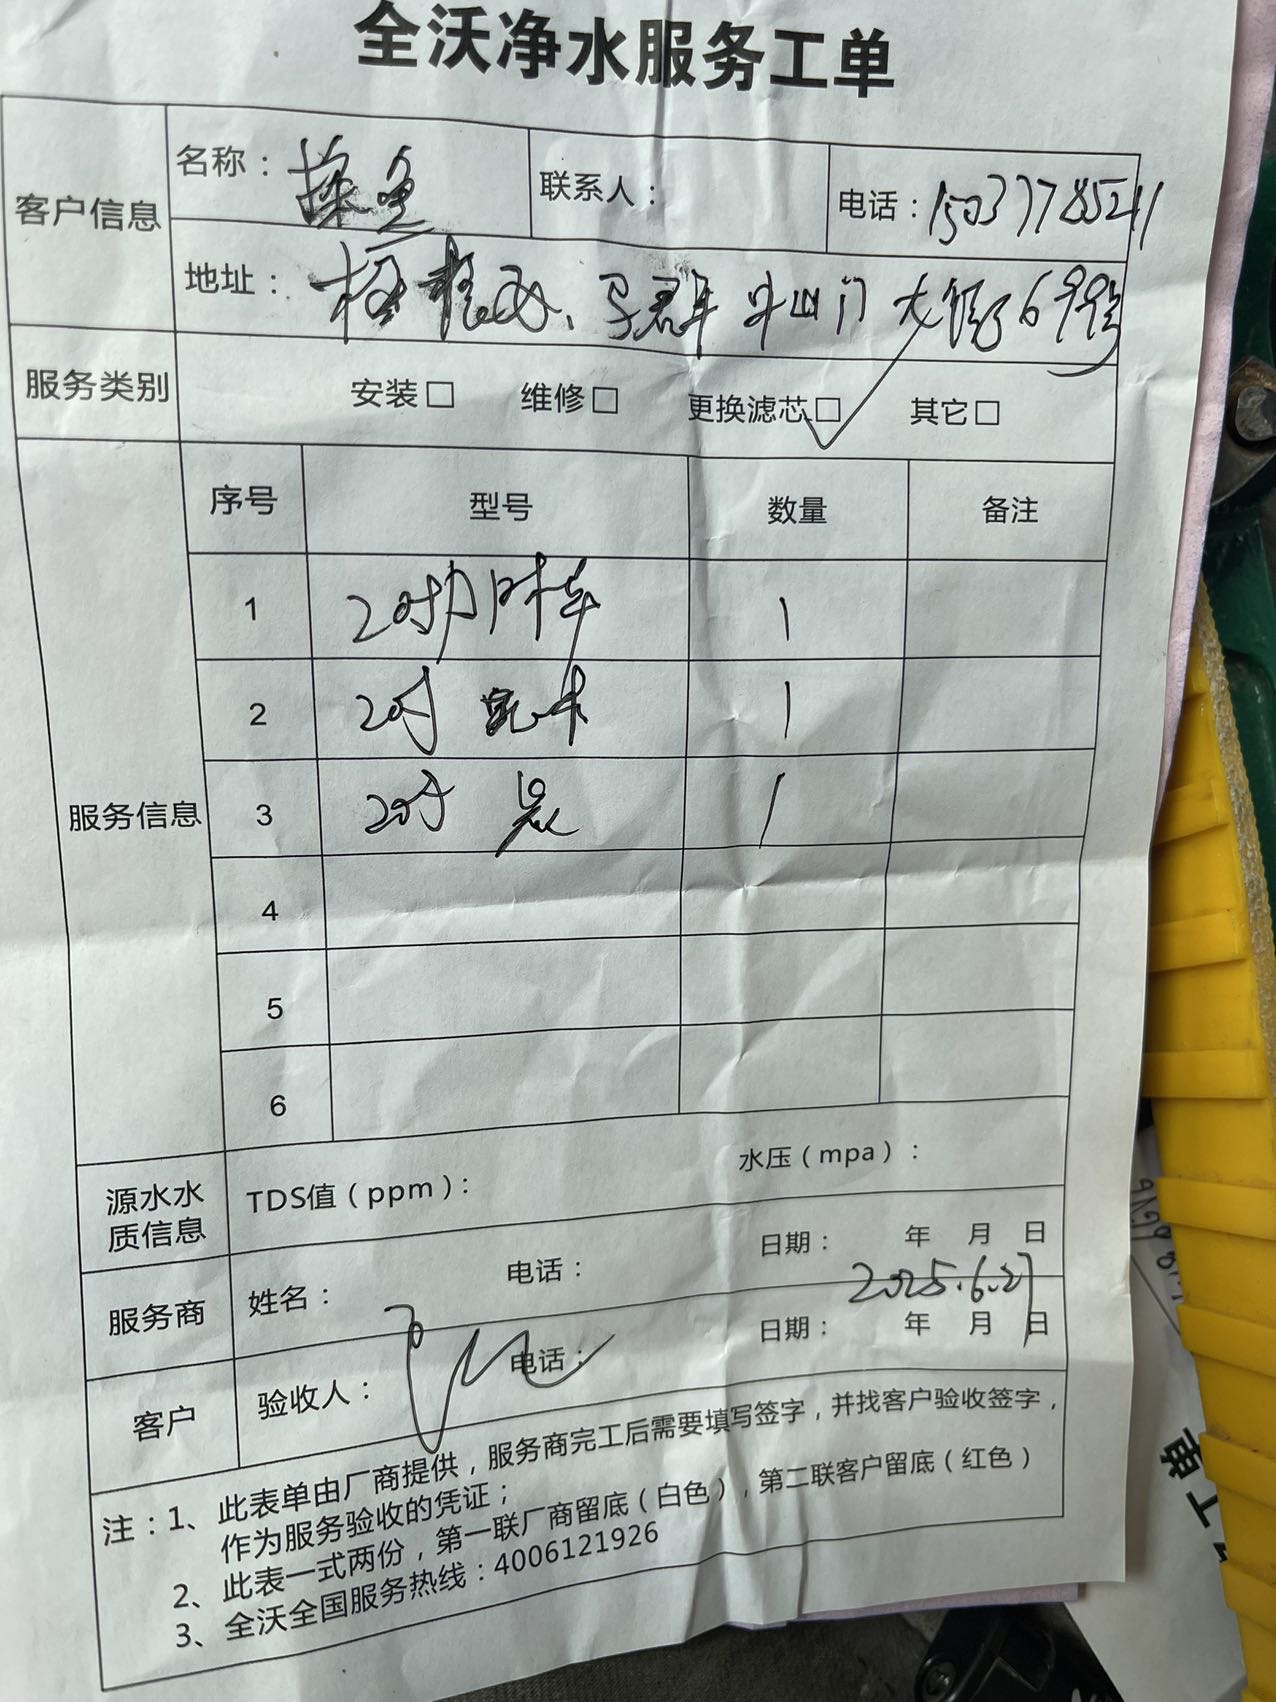 全沃净水服务工单
客户信息
名称： 探鱼
联系人：
电话：15037785211
地址： 马群 大街 699号
服务类别
安装□ 维修□ 更换滤芯□✓ 其它□
序号 型号 数量 备注
服务信息
1 20寸 1
2 20寸 1
3 20寸 炭 1
4
5
6
源水水质信息
TDS值（ppm）： 水压（mpa）：
服务商
姓名： 电话： 日期： 年 月 日
2025.6.27
客户
验收人： 电话： 日期： 年 月 日
注：1、此表单由厂商提供，服务商完工后需要填写签字，并找客户验收签字，
作为服务验收的凭证；
2、此表一式两份，第一联厂商留底（白色），第二联客户留底（红色）
3、全沃全国服务热线：4006121926